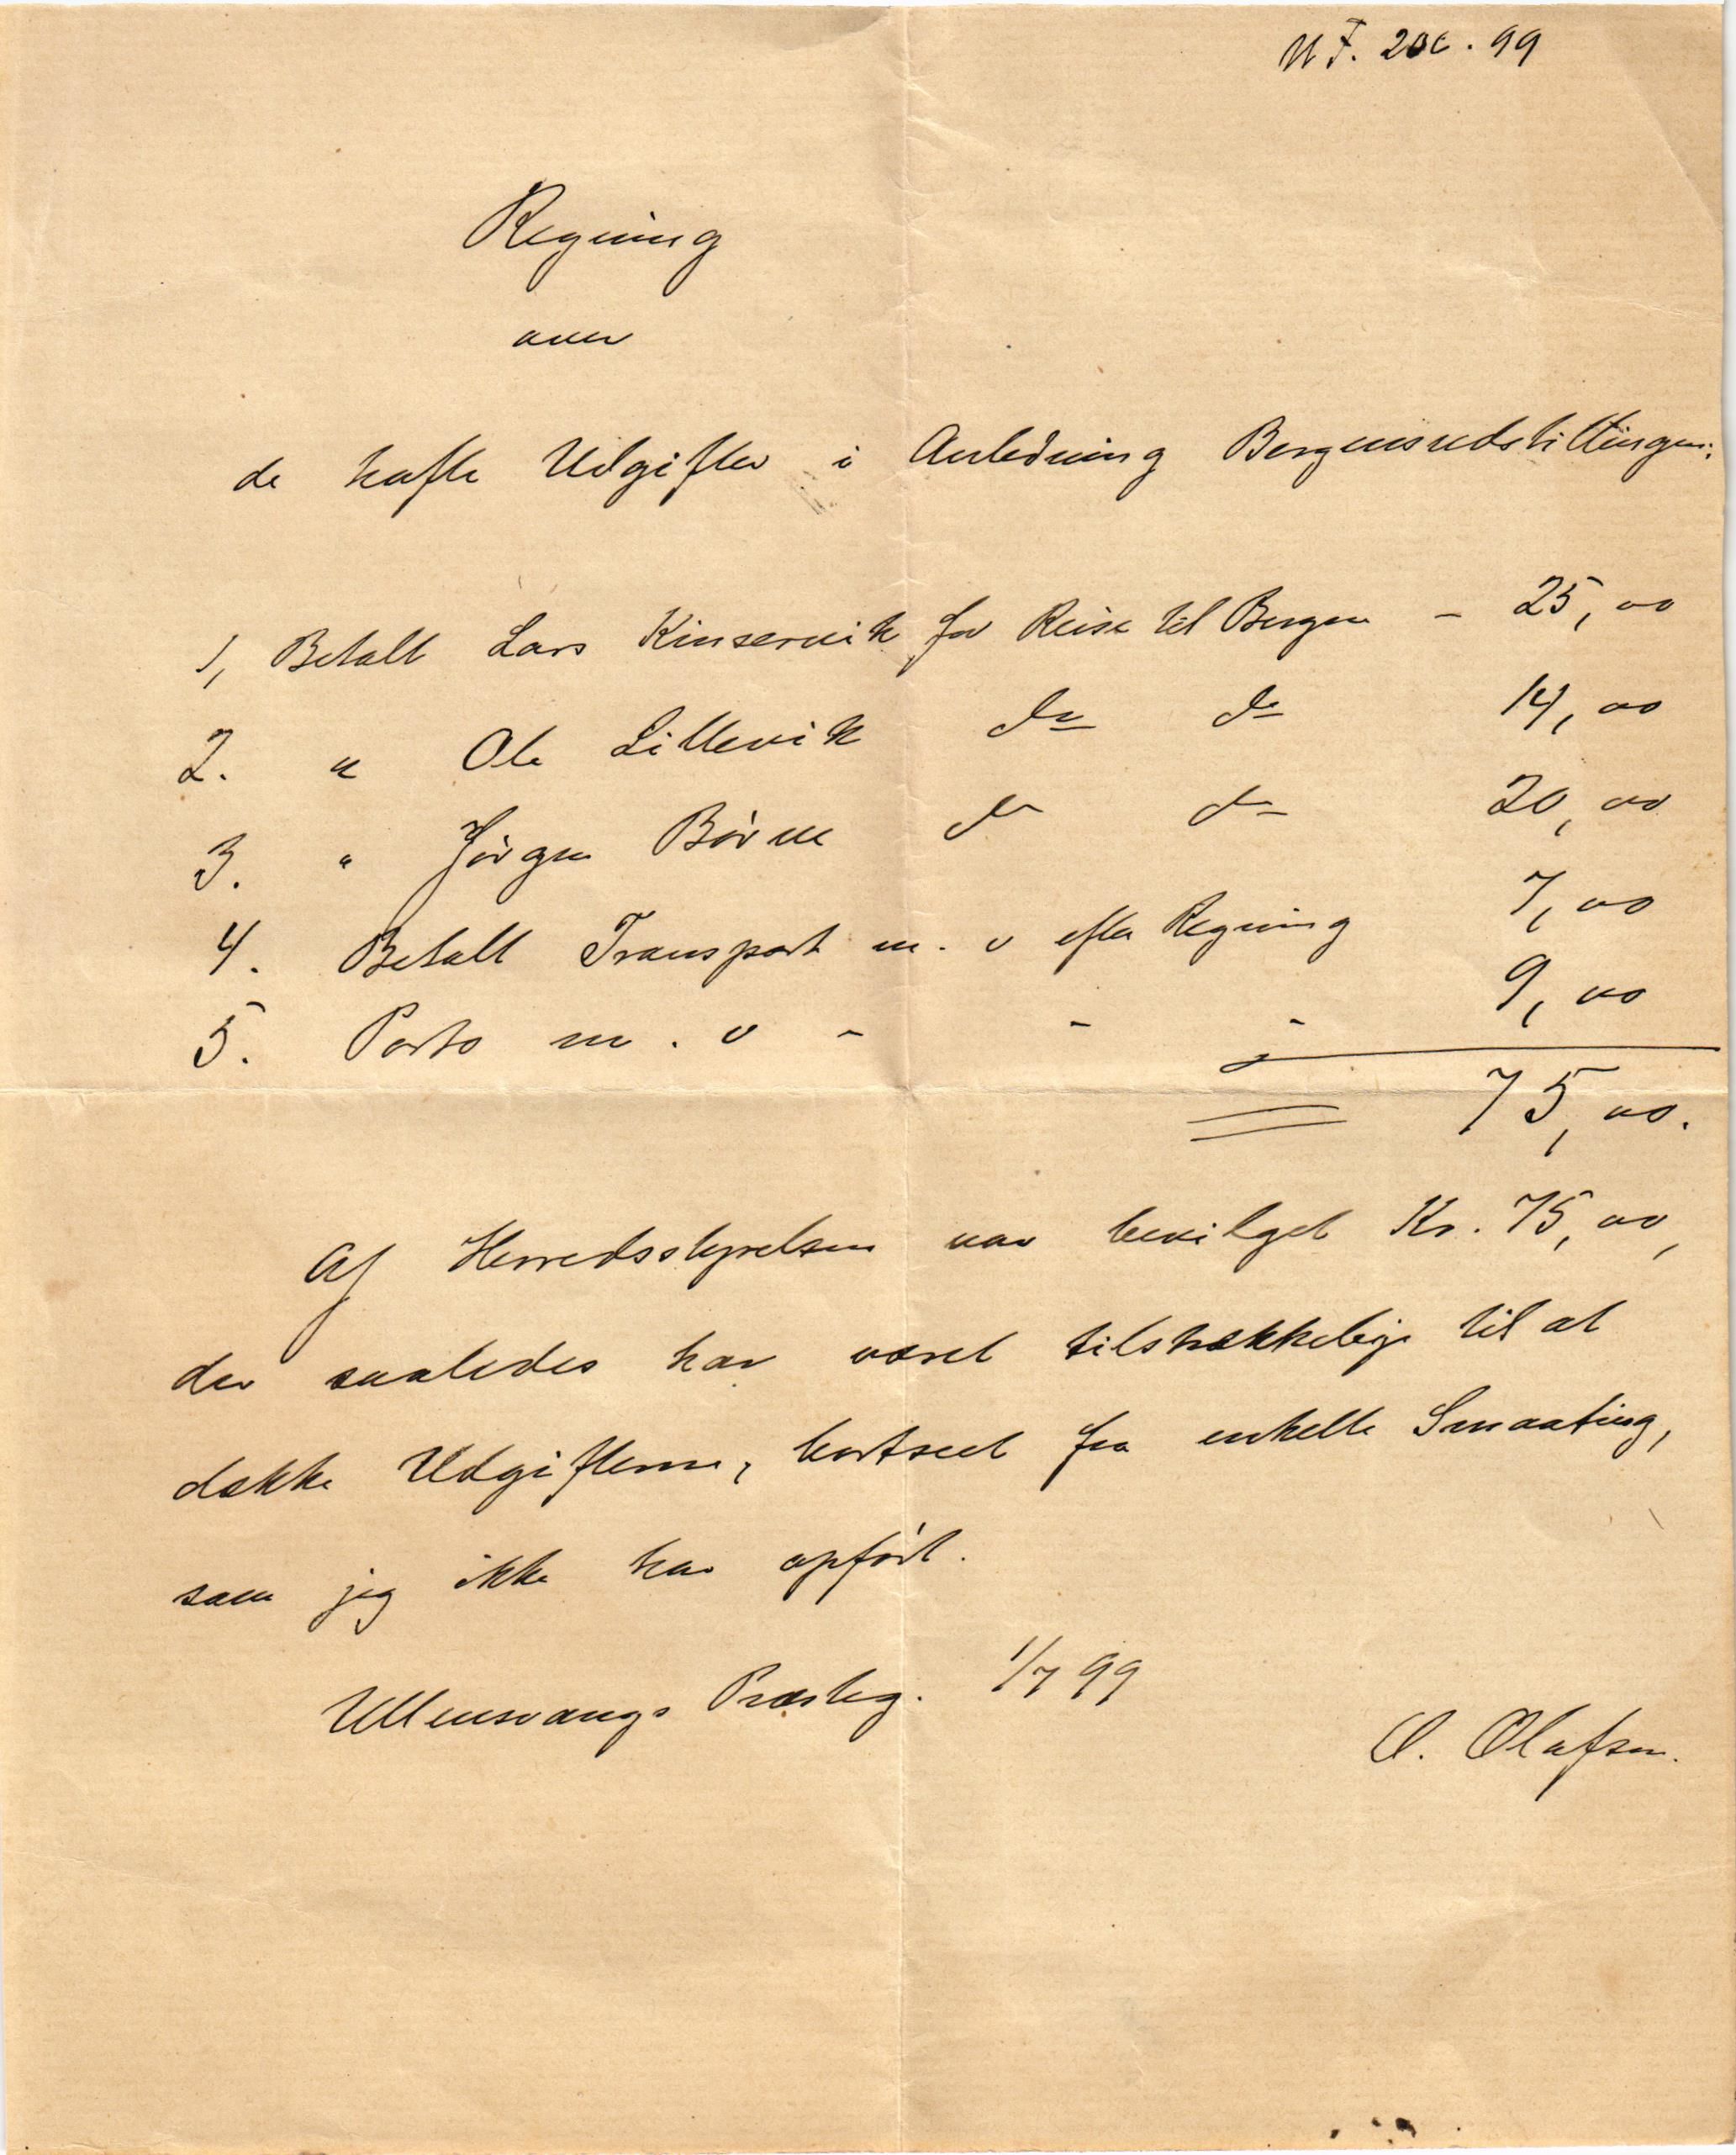 UF. 206. 99
Regning
over
de hafte Udgifter i Anledning Bergensudstillingen:
1, Betalt Lars Kinservik for Reise til Bergen - 25,00
2. " Ole Lillevik do do 14,00
3. " Jørgen Børve do do 20,00
4. Betalt Transport m. v efter Regning 7,00
5. Porto m. v - - - 9,00
75,00.
Af Herredsstyrelsen var bevilget Kr. 75,00,
der saaledes har været tilstrækkelige til at
dække Udgifterne, bortseet fra enkelte Smaating,
som jeg ikke har opført.
Ullensvangs Præsteg. 1/7 99
O. Olafsen.